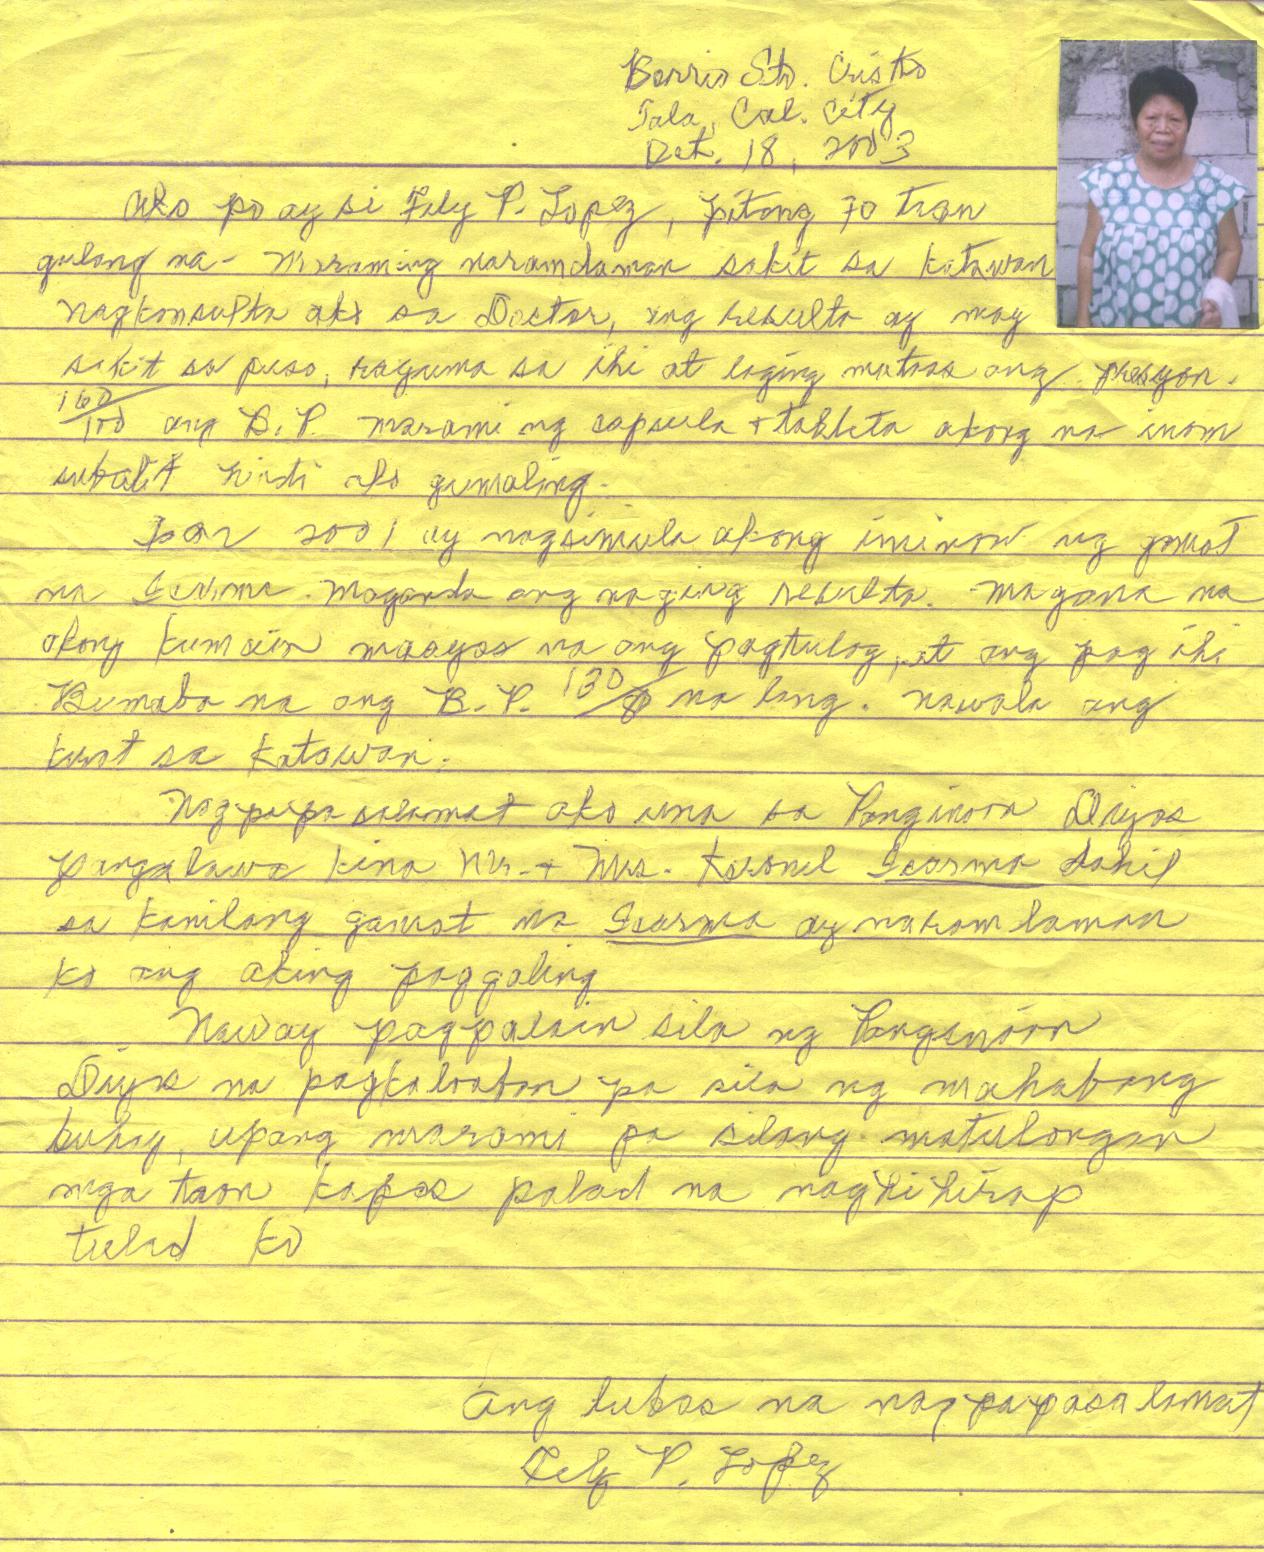 Barrio Sto. Cristo
Tala, Cal. City
Oct. 18, 2003
Ako po ay si Fely P. Lopez, pitong 70 taon
gulang na - Maraming naramdaman sakit sa katawan
nagkonsulta ako sa Doctor, ang resulta ay may
sakit sa puso, sa ihi at laging mataas ang presyon.
160/100 ang B.P. marami ng capsula + tableta akong na inom
subalit hindi ako gumaling.
2001 ay nagsimula akong iminom ng gamot
na Maganda ang naging resulta. Magana na
akong kumain maayos na ang pagtulog, at ang pag ihi
Bumaba na ang B.P. 130/ na lang. nawala ang
sa katawan.
Nagpapasalamat ako una sa Panginoon Diyos
pangalawa kina Mr. + Mrs. dahil
sa kanilang gamot na ay naramdaman
ko ang aking paggaling
Naway pagpalain sila ng Panginoon
Diyos na pagkalooban pa sila ng mahabang
buhay, upang marami pa silang matulongan
mga taon kapos palad na naghihirap
tulad ko
ang lubos na nagpapasalamat
Fely P. Lopez